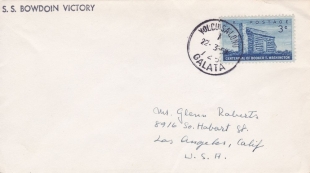 S. S. BOWDOIN VICTORY
YOLCU SALONU
GALATA
POSTAGE
3¢
CENTENNIAL OF BOOKER T. WASHINGTON
Ms. Glenn Roberts
8916 So. Hobart St.
Los Angeles, Calif
U. S. A.